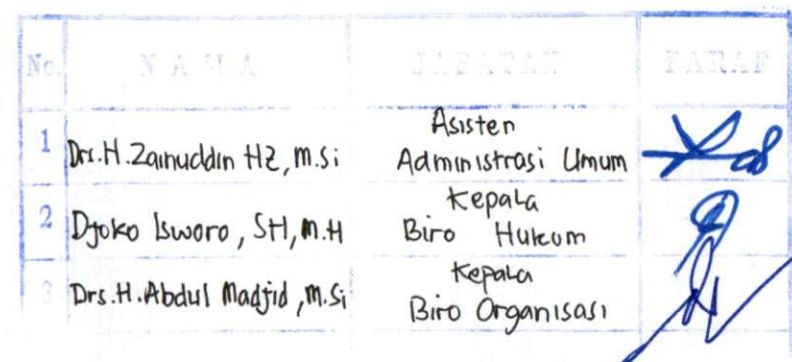 No. NAMA JABATAN PARAF
1 Drs.H.Zainuddin HZ, M.Si Asisten
Administrasi Umum
2 Djoko Isworo, SH, M.H Kepala
Biro Hukum
3 Drs.H.Abdul Madjid, M.Si Kepala
Biro Organisasi